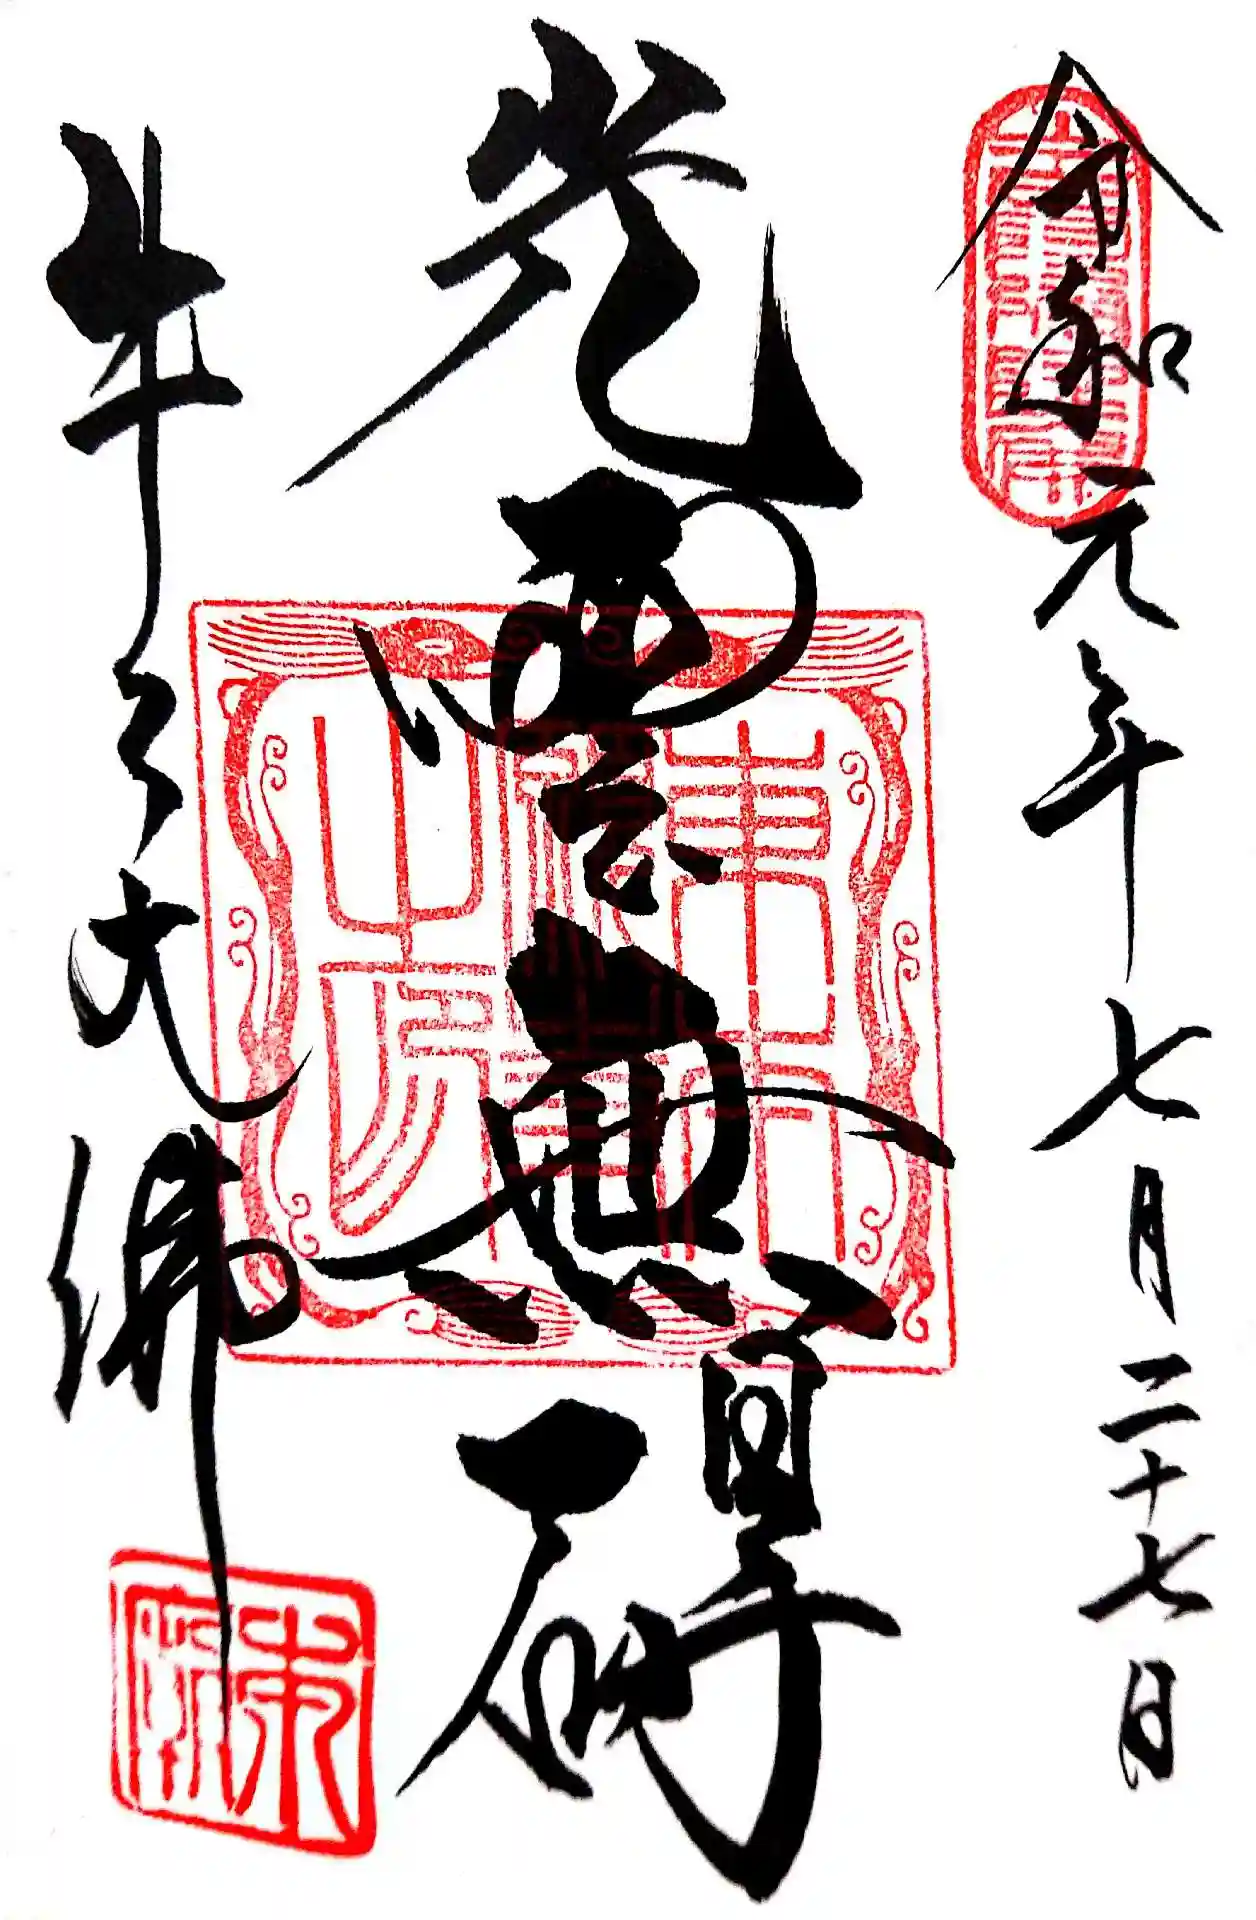 令和元年七月二十七日
光雲無碍
牛久大佛